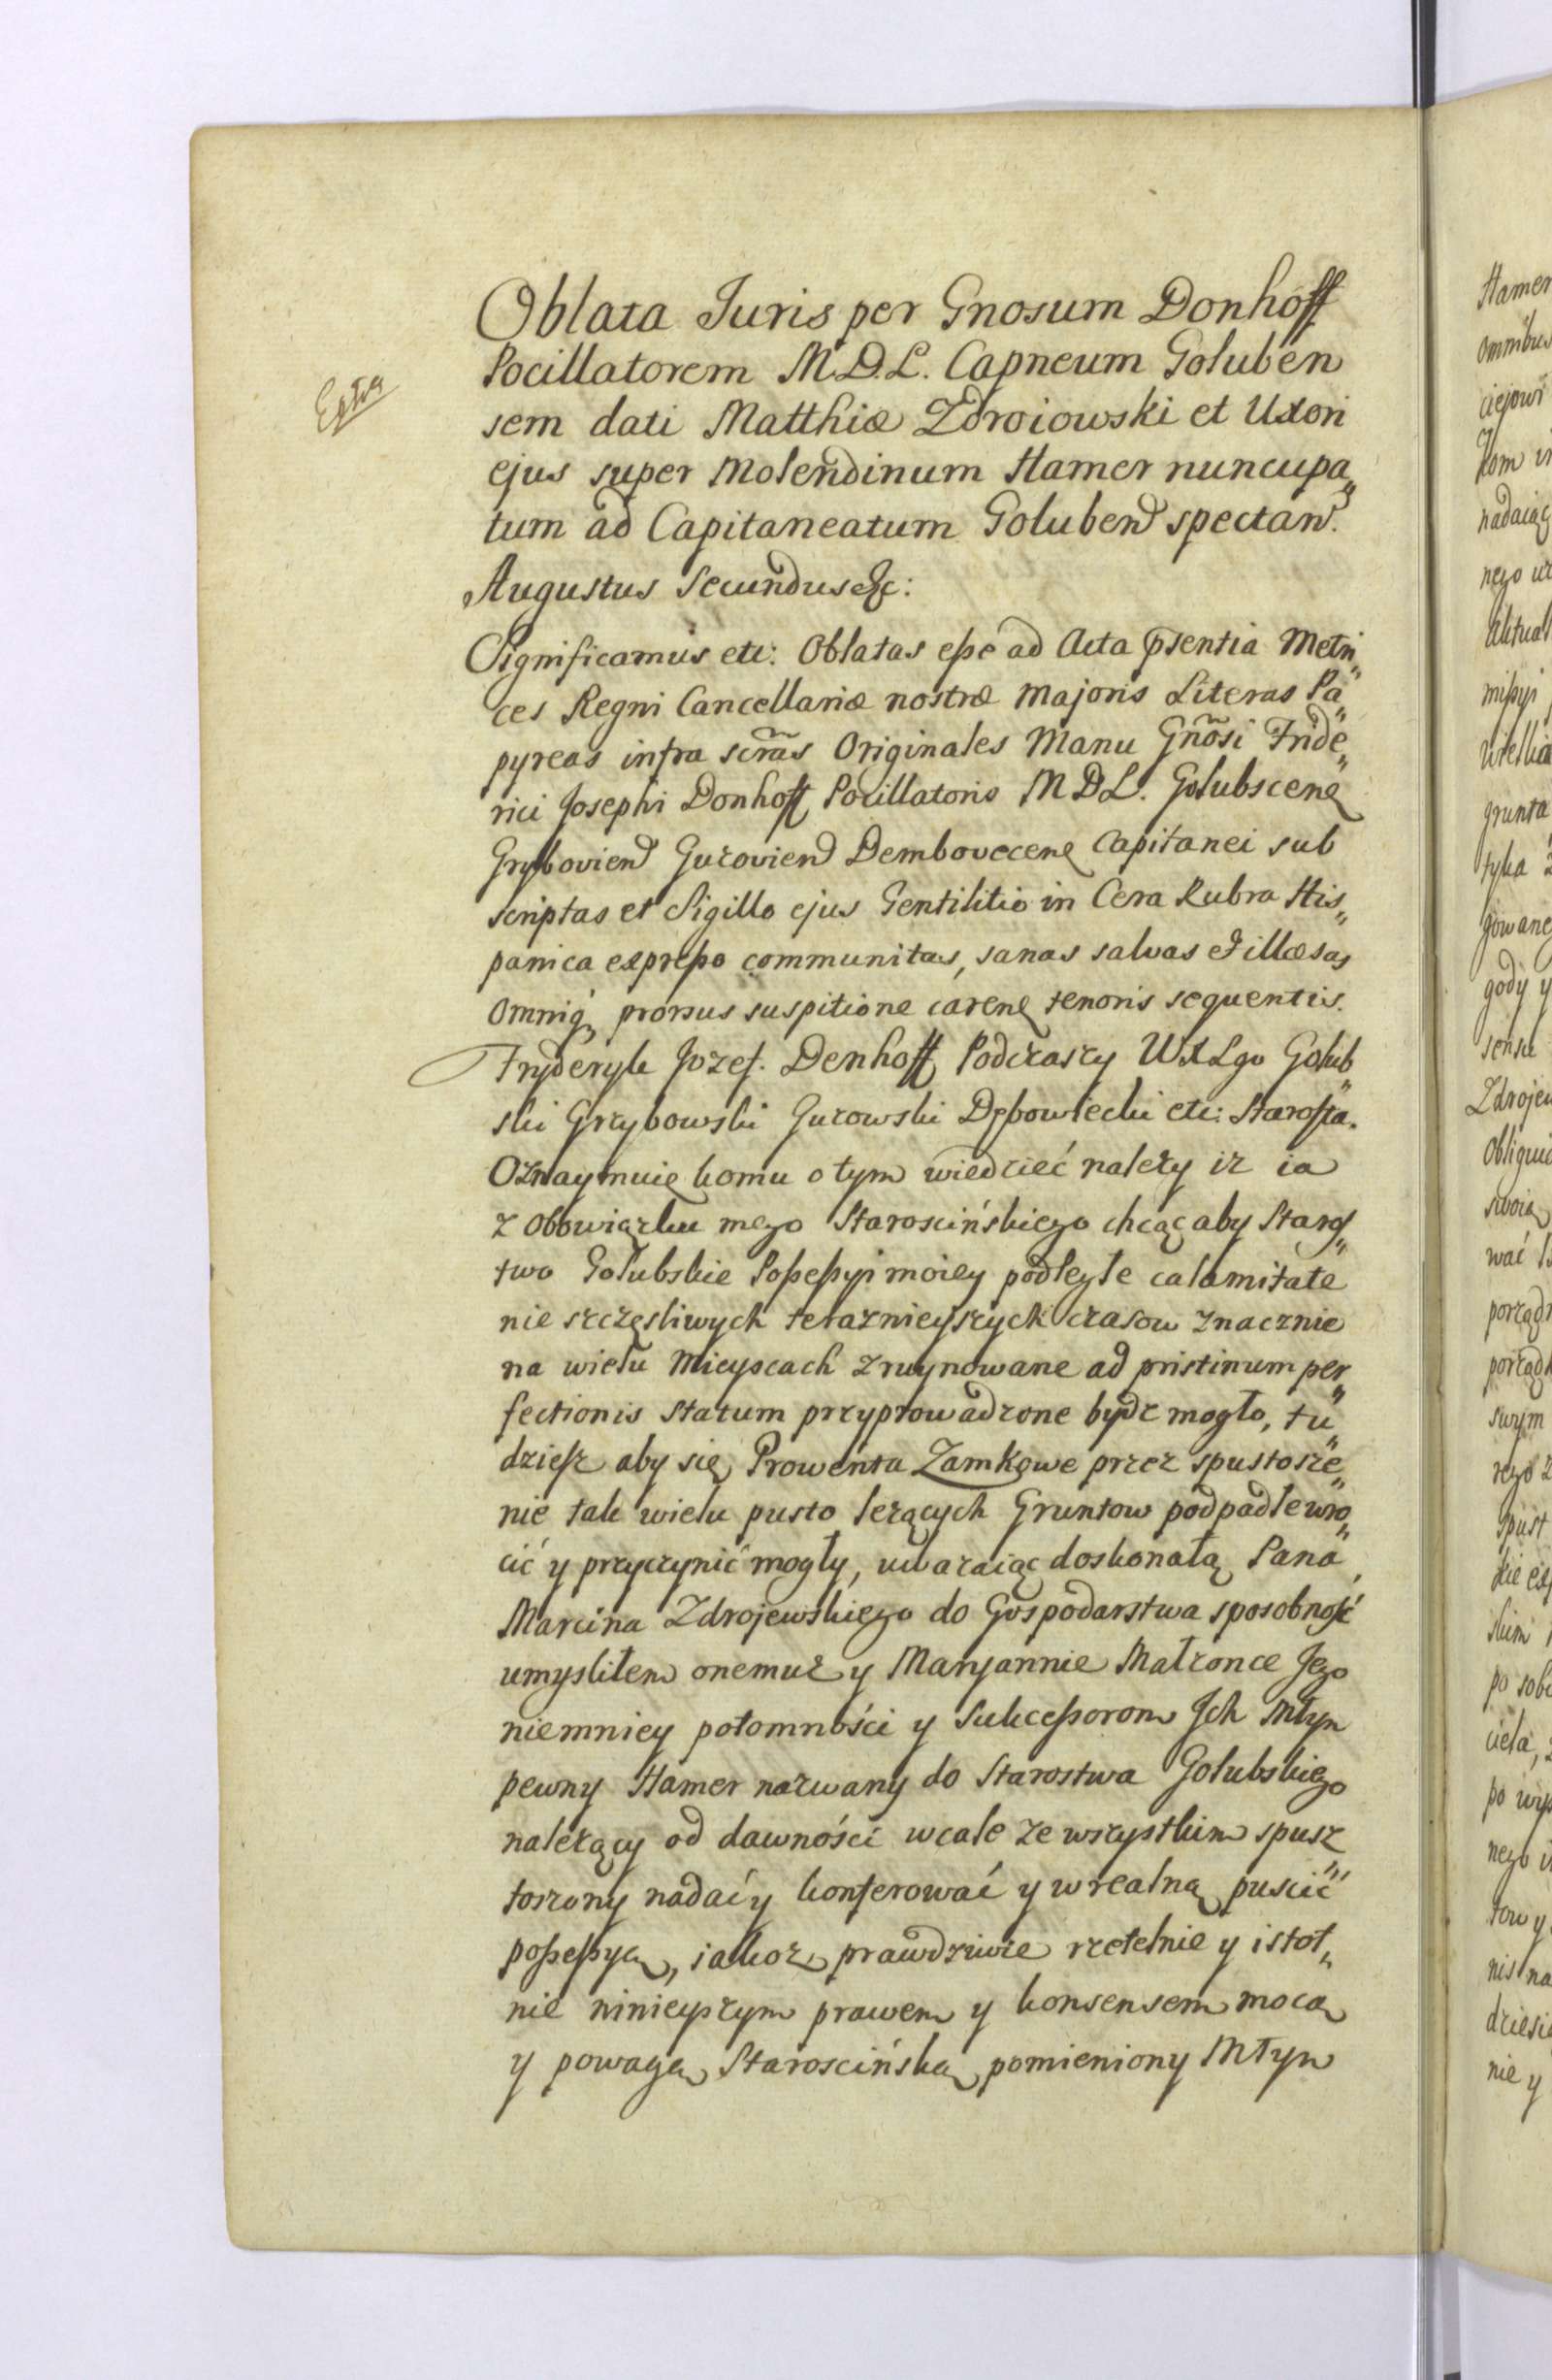 Oblata Juris per Gnosum Donhoff
Pocillatorem M.D.L. Capneum Goluben
sem dati Matthiæ Zdroiowski et Uxori
ejus super Molendinum Hamer nuncupa„
tum ad Capitaneatum Goluben spectan.
Augustus Secundus &c:
Significamus etc: Oblatas eße ad Acta p̄sentia Metri„
ces Regni Cancellariæ nostræ Majoris Literas Pa„
pyreas infra scr̃as Originales Manu Gñosi Fride„
rici Josephi Donhoff Pocillatoris M D L. Golubscen
Grybovien Gurovien Dembovecen Capitanei sub
scriptas et Sigillo ejus Gentilitio in Cera Rubra His„
panica expreßo communitas, sanas salvas et illæsas
omniq prorsus suspitione caren tenoris sequentis.
Fryderyk Jozef. Denhoff Podczaszy WXLgo Golub„
ski Grzybowski Gurowski Dębowiecki etc: Starosta.
Oznaymuię komu o tym wiedzieć należy iz ia
z obowiązku mego Starościńskiego chcąc aby Staros„
two Golubskie Poßeßyi moiey podległe calamitate
nie szczęsliwych teraznieyszych czasow znacznie
na wielu mieyscach zruynowane ad pristinum per„
fectionis statum przyprowadzone bydz mogło, tu„
dziesz aby się Prowenta Zamkowe przez spustosze„
nie tak wielu pusto leżących Gruntow podpadłe wro„
cić y przyczynić mogły, uważaiąc doskonałą Pana
Marcina Zdrojewskiego do Gospodarstwa sposobność
umysliłem onemuż y Maryannie Małżonce Jego
niemniey potomności y Sukceßorom Jch Młyn
pewny Hamer nazwany do Starostwa Golubskiego
należący od dawności wcale ze wszystkim spusz„
toszony nadać y konferować y w realną puścić
poßeßyą, iakoż prawdziwie rzetelnie y istot„
nie ninieyszym prawem y konsensem mocą
y powagą Starościńską pomieniony Młyn